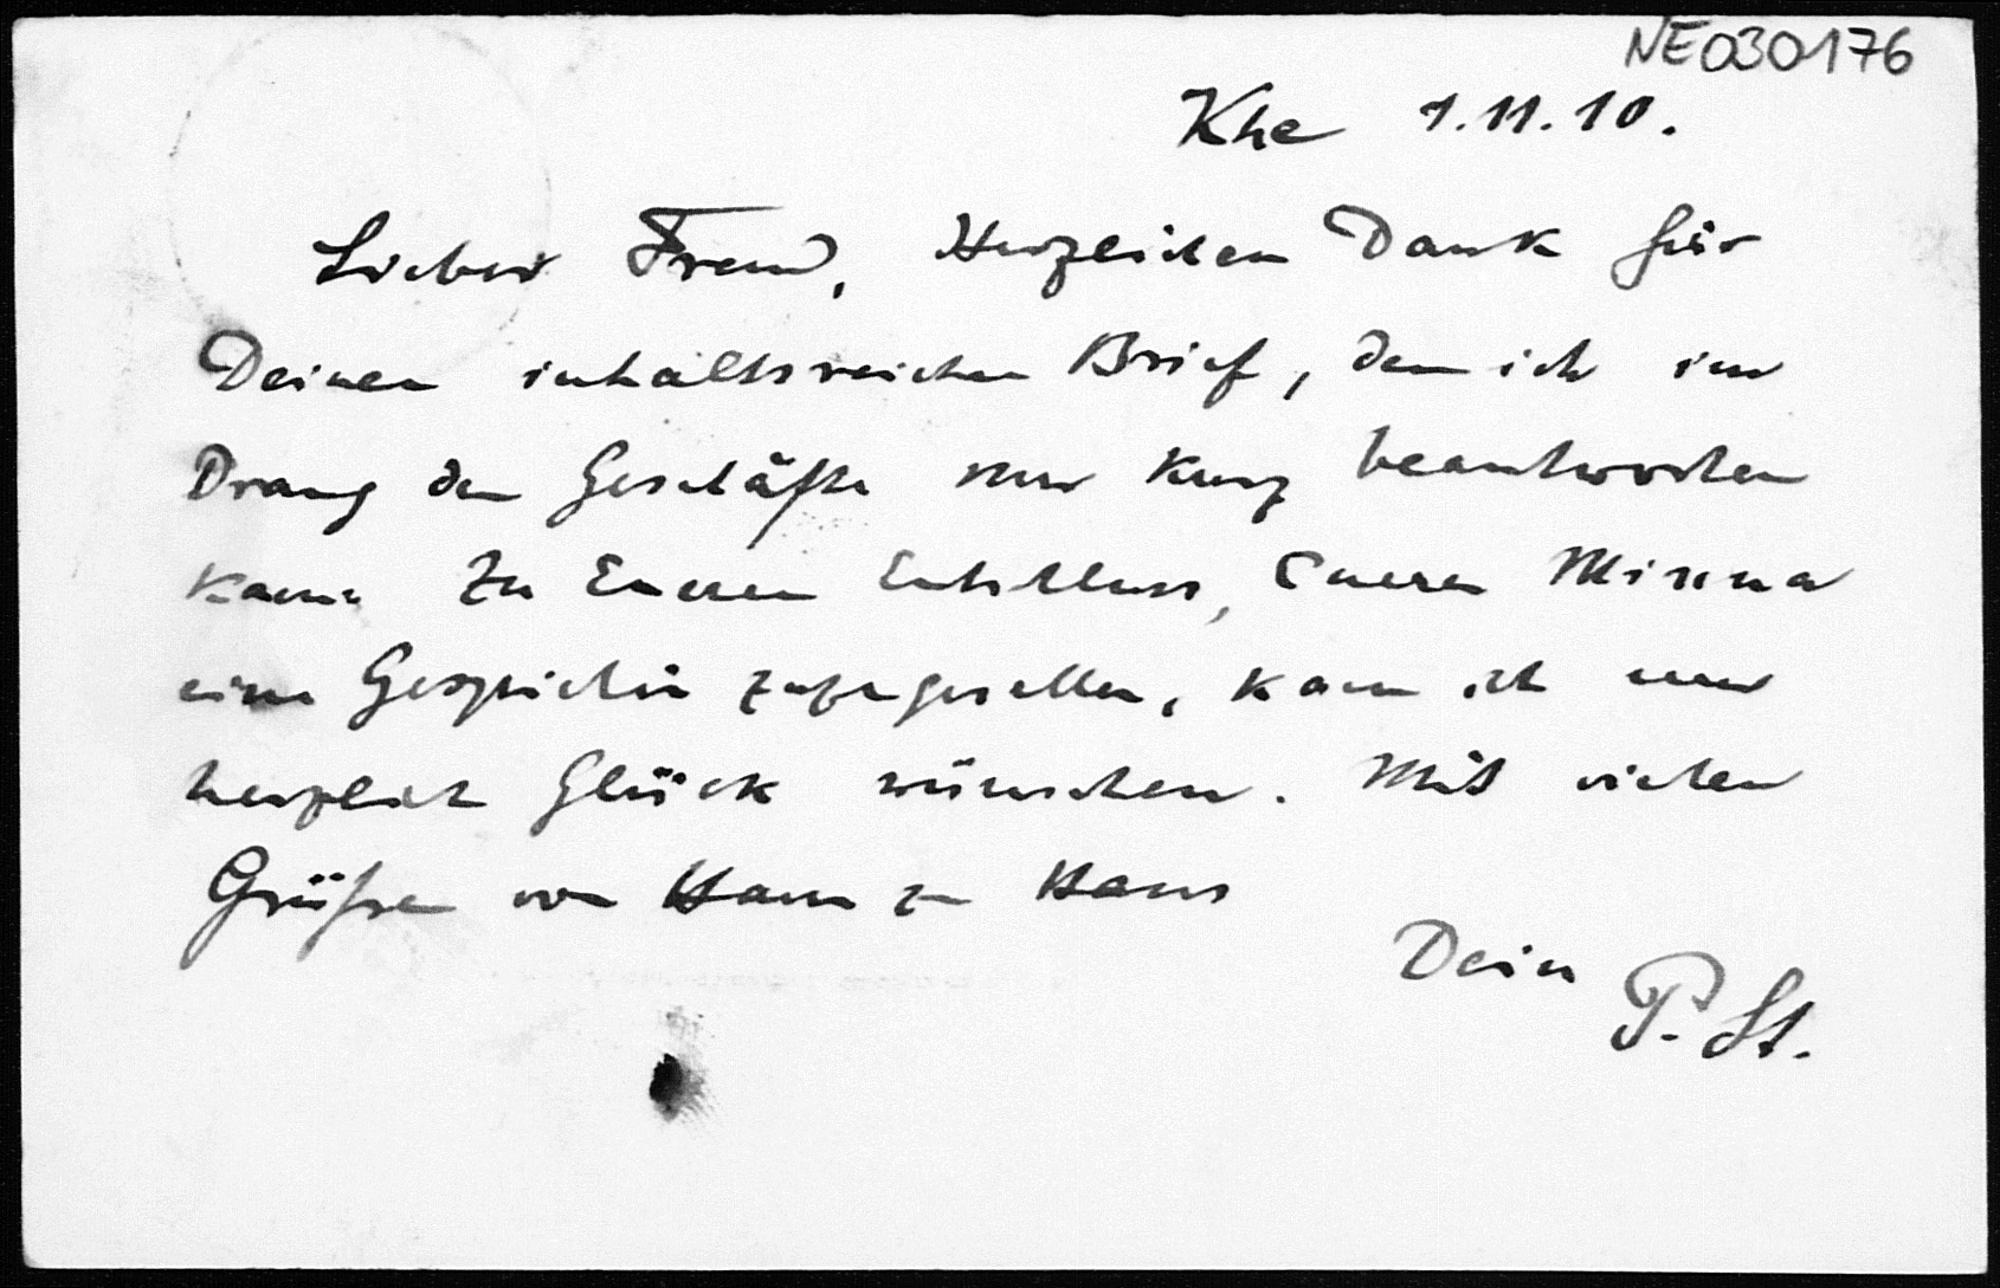 NE030176
Khe 1.11.10.
Lieber Freund, Herzlichen Dank für
Deinen inhaltsreichen Brief, den ich im
Drang der Geschäfte nur kurz beantworten
kann. Zu Eueren Entschluss, Euerer Minna
eine Gespielin zuzugesellen, kann ich nur
herzlich Glück wünschen. Mit vielen
Grüßen von Haus zu Haus
Dein
P. St.